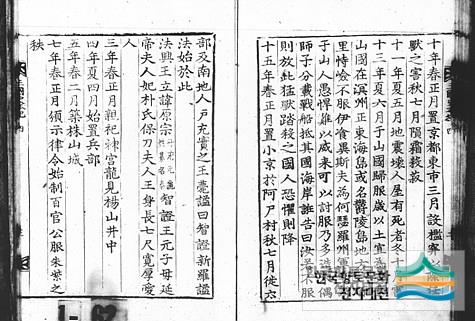 十年春正月置京都東市三月設檻穽以除猛
獸之害秋七月隕霜殺菽
十一年夏五月地震壞人屋有死者冬十月雷
十三年夏六月于山國歸服歲以土宜爲
山國在溟州正東海島或名欝陵島地方
里恃嶮不服伊飡異斯夫爲何瑟羅州軍
于山人愚悍難以威來可以計服乃多造 偶
師子分載戰船抵其國海岸誑告曰汝若不服
則放此猛獸踏殺之國人恐懼則降
十五年春正月置小京於阿尸村秋七月徙六
部及南地人戶充實之 王薨謚曰智證新羅謚
法始於此
法興王立諱原宗 智證王元子母延
帝夫人妃朴氏保刀夫人王身長七尺寬厚愛
人
三年春正月親祀神宮龍見楊山井中
四年夏四月始置兵部
五年春二月築株山城
七年春正月頒示律令始制百官公服朱紫之
秩
1-62
한국향토문화
전자대전